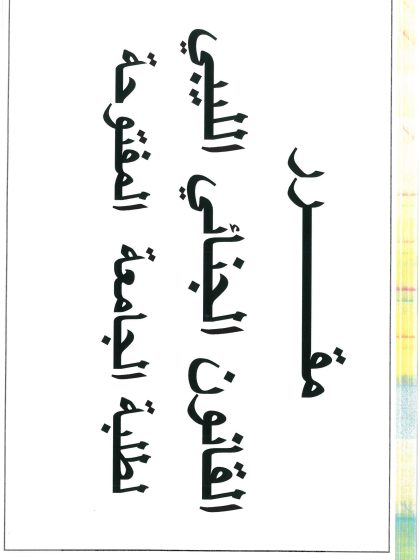 مقــــرر
القانون الجنائي الليبي
لطلبة الجامعة المفتوحة